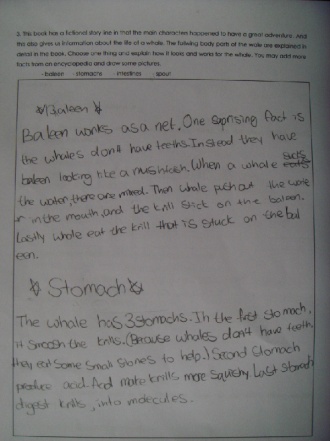 2. This book has a fictional story line in that the main characters happened to have a great adventure. And
this also gives us information about the life of a whale. The follwing body parts of the wale are explained in
detail in the book. Choose one thing and explain how it looks and works for the whale. You may add more
facts from an encyclopedia and draw some pictures.
· baleen · stomachs · intestines · spout
Baleen
Baleen works as a net. One suprising fact is
the whales don't have teeths. Instead they have
baleen looking like a mushtach. When a whale sucks
the water, there are mixed. Then whale push out the wate
r in the mouth, and the krill stick on the baleen.
Lastly whale eat the krill that is stuck on the bal
een.
Stomach
The whale has 3 stomachs. In the first stomach,
it smoosh the krills. (Because whales don't have teeth
they eat some small stones to help.) Second stomach
produce acid. And make krills more squishy. Last stomach
digest krills, into molecules.